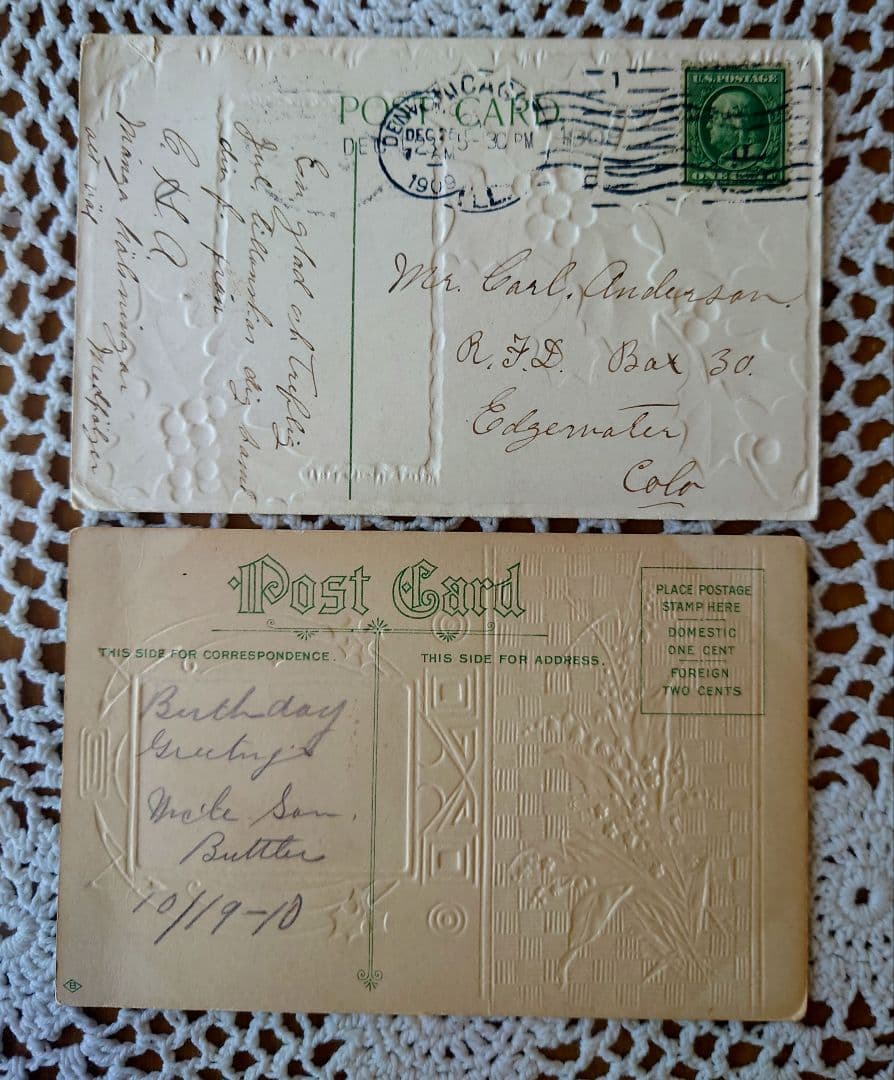 POST CARD
DENVER
DEC 26
7-AM
1909
CHICAGO
5-30 PM
ILL.
U.S. POSTAGE
ONE CENT
Mr. Carl. Anderson.
R. F. D. Box 30.
Edgewater
Colo
En glad och
Jul tillönskas dig samt
din f. från
C. A. A.
Många hälsningar
att väl
Medföljer
Post Card
THIS SIDE FOR CORRESPONDENCE.
THIS SIDE FOR ADDRESS.
PLACE POSTAGE
STAMP HERE
DOMESTIC
ONE CENT
FOREIGN
TWO CENTS
Birthday
Greetings
Uncle Sam.
Buttler
10/19-10
B